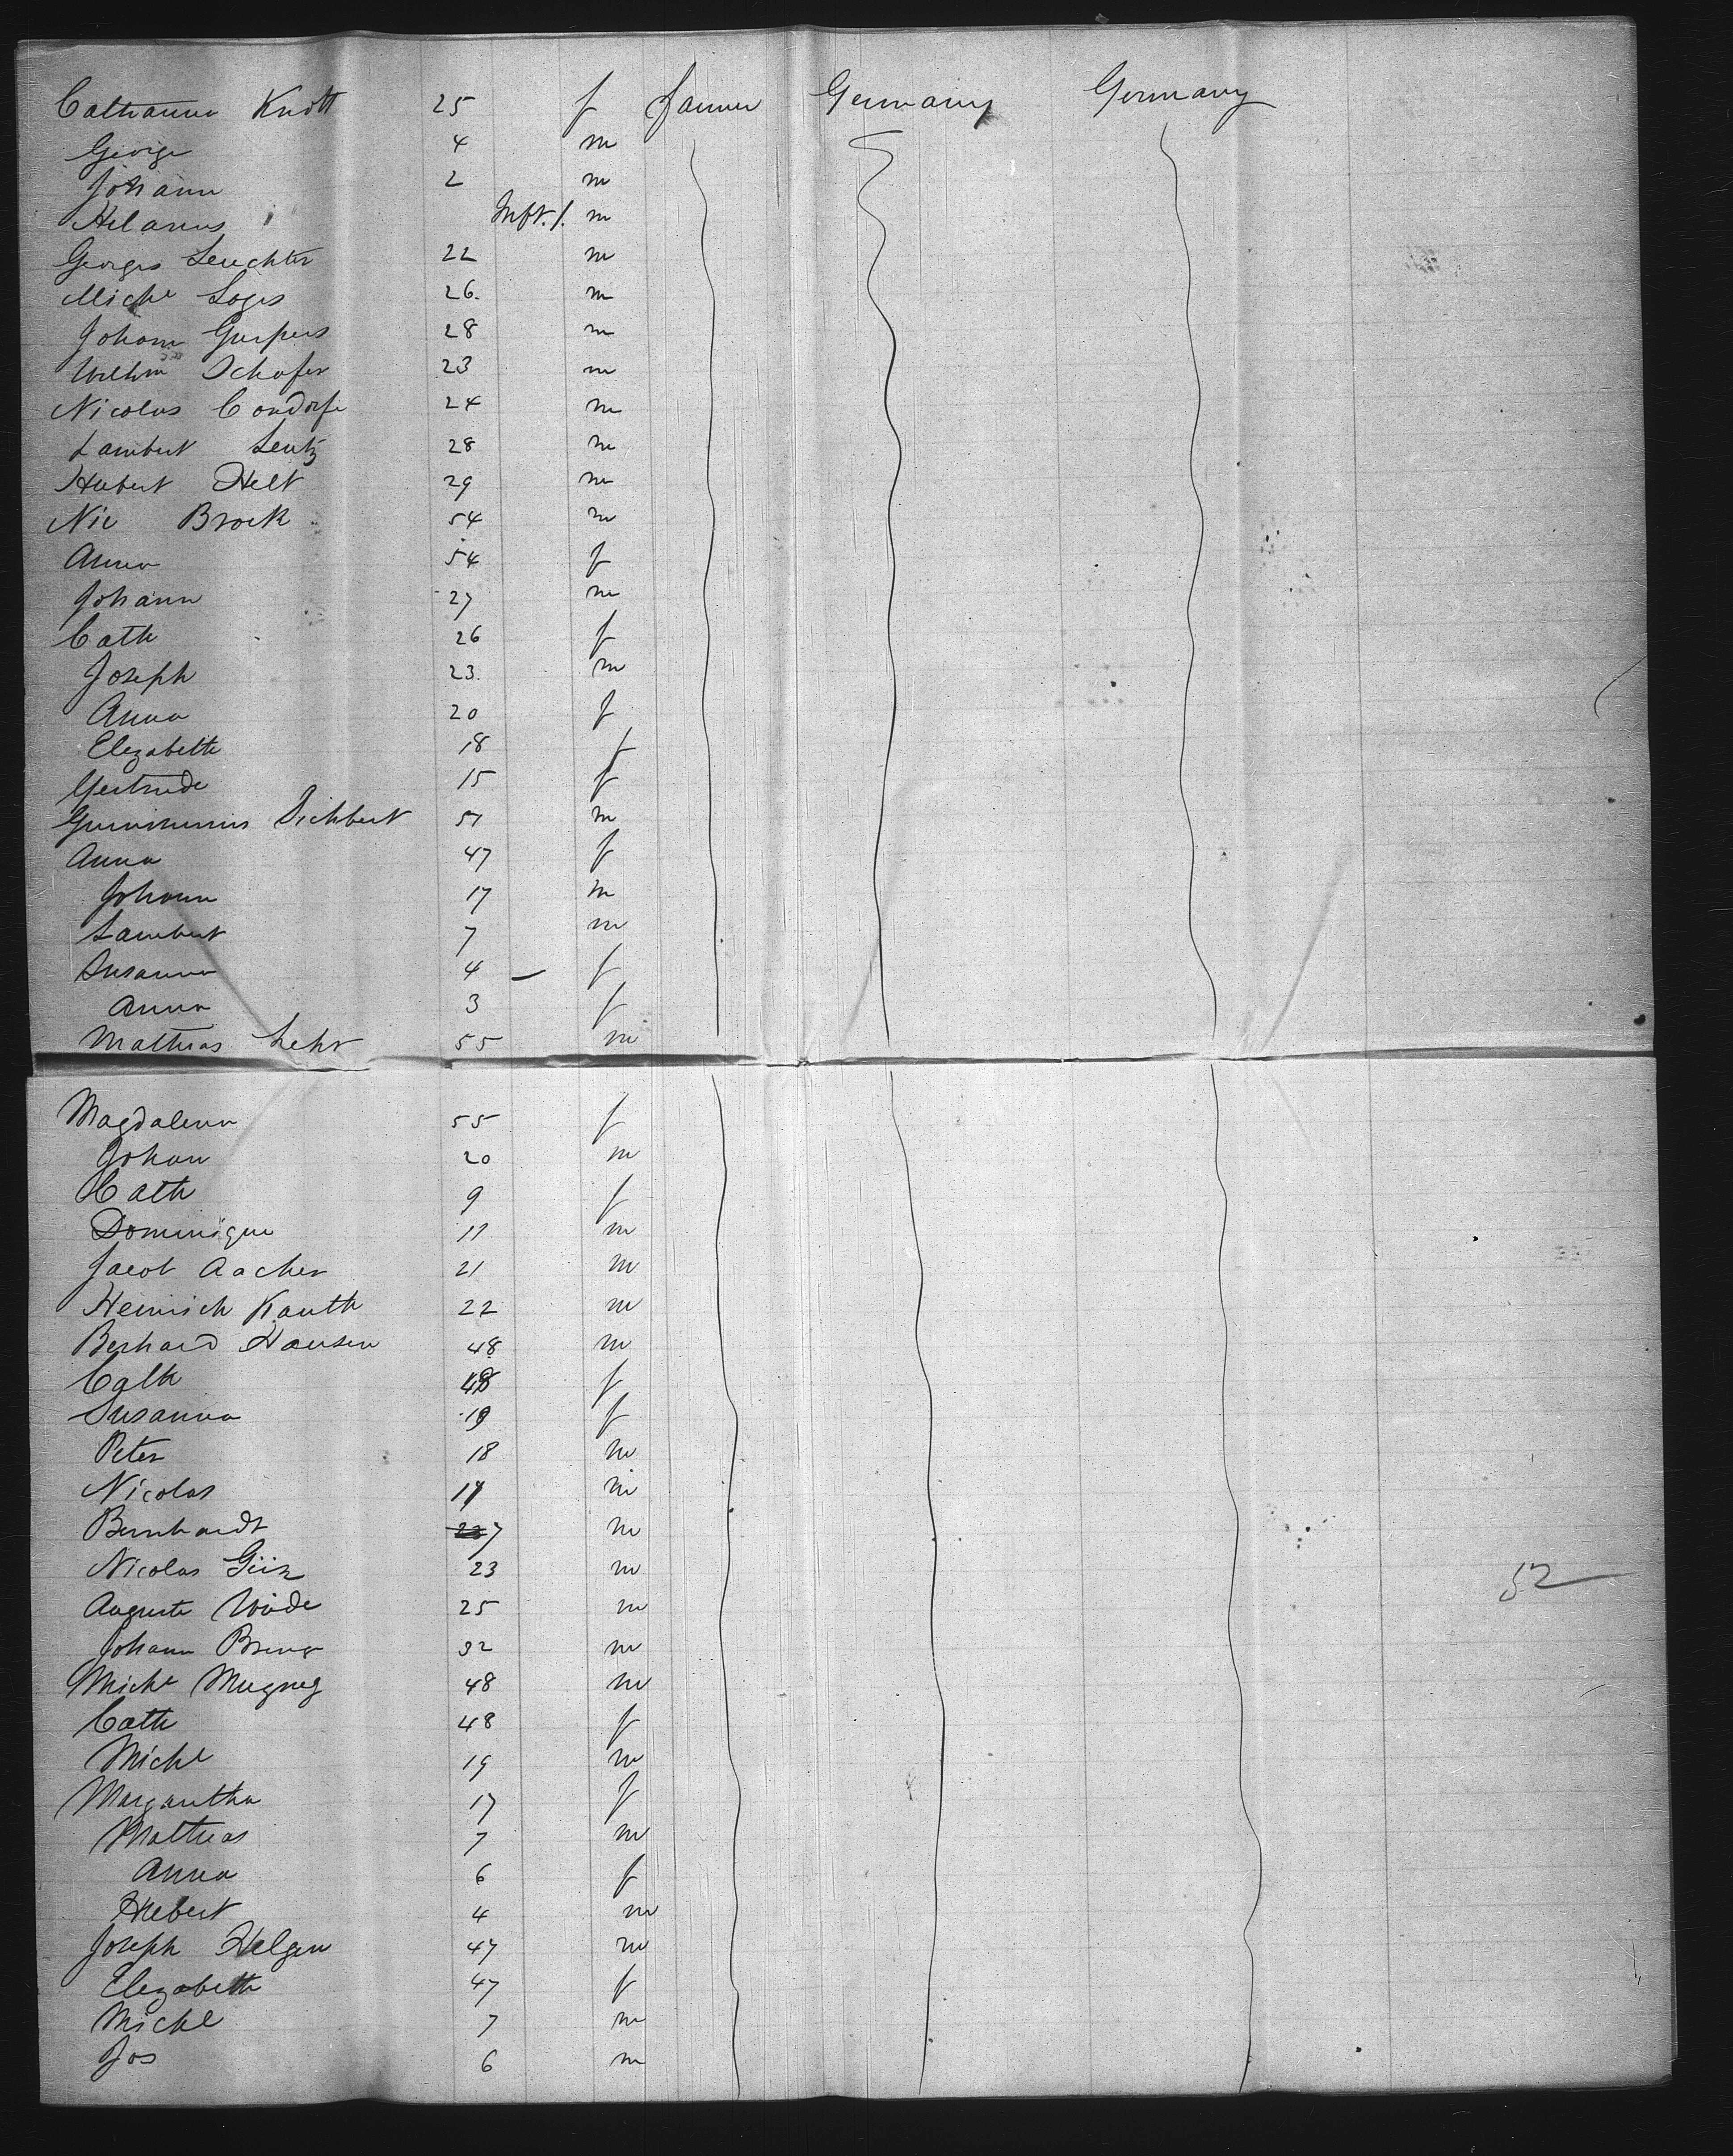 Catharina Knott 25 f farmer Germany Germany
George 4 m
Johann 2 m
Hilarius Inft. 1. m
Georges Leuchter 22 m
Michl Loges 26. m
Johann Gerpers 28 m
Wilhm Schafer 23 m
Nicolas Condorfe 24 m
Lambert Lentz 28 m
Hubert Helt 29 m
Nic Brock 54 m
Anna 54 f
Johann 27 m
Cath 26 f
Joseph 23. m
Anna 20 f
Elizabeth 18 f
Gertrude 15 f
Dichbert 51 m
Anna 47 f
Johann 17 m
Lambert 7 m
Susanna 4 — f
Anna 3 f
Mathias Lehr 55 m
Magdalena 55 f
Johan 20 m
Cath 9 f
Dominique 11 m
Jacob Aacher 21 m
Heinrich Kauth 22 m
Berhard Hansen 48 m
Cath 48 f
Susanna 19 f
Peter 18 m
Nicolas 17 m
Bernhardt 7 m
Nicolas 23 m
52
Auguste Wade 25 m
Johann 32 m
Michl 48 m
Cath 48 f
Michl 19 m
Margaretha 17 f
Mathias 7 m
Anna 6 f
Hubert 4 m
Joseph Helgen 47 m
Elizabeth 47 f
Michl 7 m
Jos 6 m